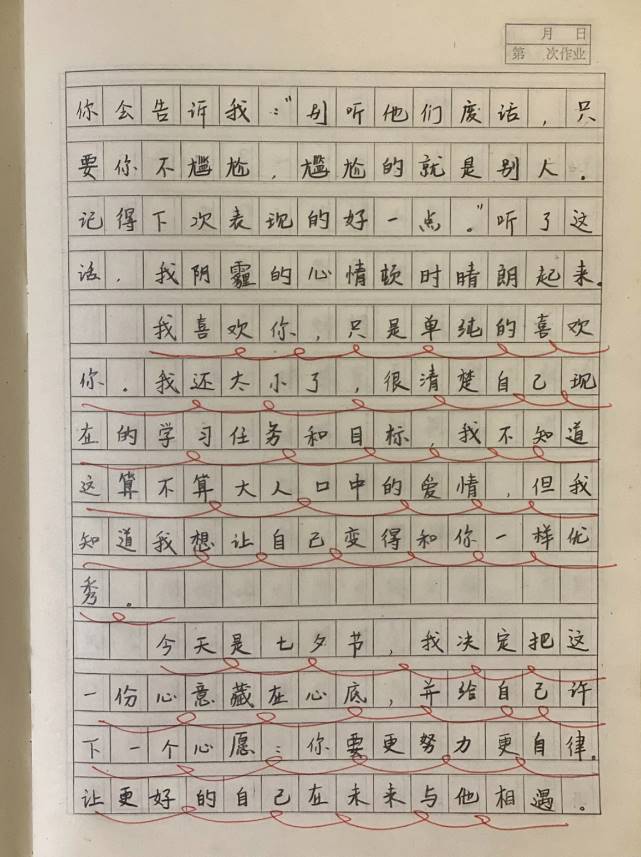 月 日
第 次作业
你会告诉我："别听他们废话，只
要你不尴尬，尴尬的就是别人。
记得下次表现的好一点。"听了这
话，我阴霾的心情顿时晴朗起来。
我喜欢你，只是单纯的喜欢
你。我还太小了，很清楚自己现
在的学习任务和目标，我不知道
这算不算大人口中的爱情，但我
知道我想让自己变得和你一样优
秀。
今天是七夕节，我决定把这
一份心意藏在心底，并给自己许
下一个心愿：你要更努力更自律。
让更好的自己在未来与他相遇。